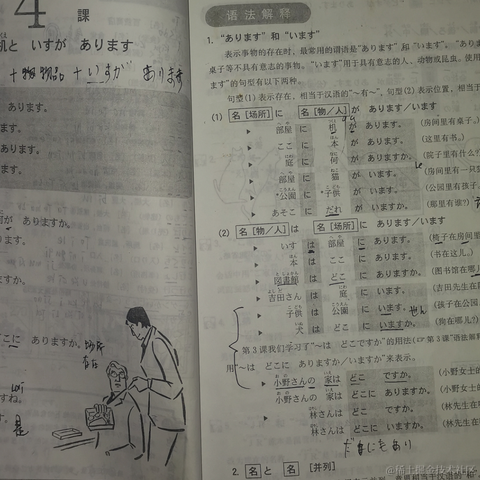 4 課
机と いすが あります
いすが あります
あります。
ます。
あります。
ます。
が ありますか。
ますか。
こに ありますか。
すね。
是
语法解释
1. “あります” 和 “います”
表示事物的存在时，最常用的谓语是“あります” 和 “います”。“あり
桌子等不具有意志的事物。“います”用于具有意志的人、动物或昆虫。使用
ます”的句型有以下两种。
句型(1)表示存在，相当于汉语的“～有～”，句型(2)表示位置，相当于
(1) 名[场所] に 名[物/人] が あります/います
▶ 部屋 に 机 が あります。 (房间里有桌子。)
▶ ここ に 本 が あります。 (这里有书。)
▶ 庭 に 何 が ありますか。 (院子里有什么?
▶ 部屋 に 猫 が います。 (房间里有一只
▶ *公園 に *子供 が います。 (公园里有孩子。
▶ あそこ に だれ が いますか。 (那里有谁?)
(2) 名[物/人] は 名[场所] に あります/います
▶ いす は 部屋 に あります。 (椅子在房间里
▶ 本 は ここ に あります。 (书在这儿。)
▶ 図書館 は どこ に ありますか。 (图书馆在哪儿
▶ 吉田さん は 庭 に います。 (吉田先生在院
▶ 子供 は 公園 に います。 (孩子在公园
▶ 犬 は どこ に いますか。 (狗在哪儿?)
第3课我们学习了“～は どこですか”的用法(☞第3课“语法解释
用“～は どこに ありますか/いますか”来表示。
▶ 小野さんの 家は どこ ですか。 (小野女士的
小野さんの 家は どこに ありますか。 (小野女士的
▶ 林さんは どこ ですか。 (林先生在哪
林さんは どこに いますか。 (林先生在哪
2. 名 と 名 [并列]
@稀土掘金技术社区